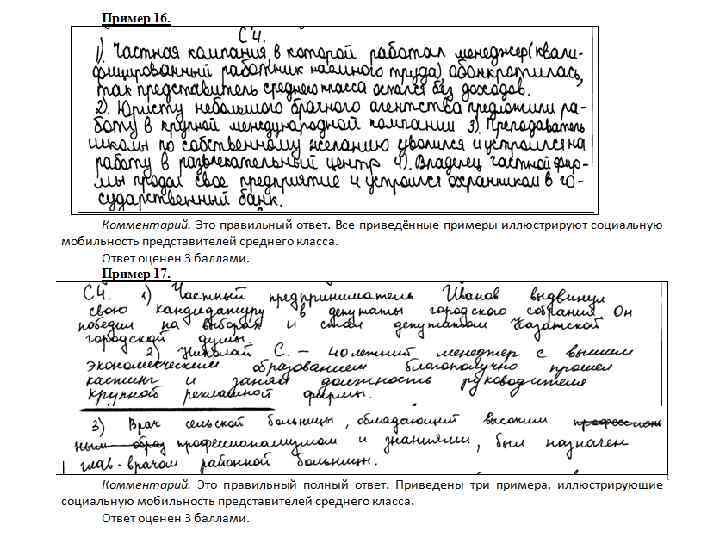 Пример 16.
С4.
1). Частная компания, в которой работал менеджер (квали-
фицированный работник наёмного труда), обанкротилась,
так представитель среднего класса остался без доходов.
2). Юристу небольшого брачного агентства предложили ра-
боту в крупной международной компании 3). Преподаватель
школы по собственному желанию уволился и устроился на
работу в развлекательный центр 4). Владелец частной фир-
мы продал свое предприятие и устроился охранником в го-
сударственный банк.
Комментарий. Это правильный ответ. Все приведённые примеры иллюстрируют социальную
мобильность представителей среднего класса.
Ответ оценен 3 баллами.
Пример 17.
С4. 1) Частный предприниматель Иванов выдвинул
свою кандидатуру в депутаты городского собрания. Он
победил на выборах и стал депутатом Казанской
городской думы.
2) Николай С. – 40 летний менеджер с высшем
экономическим образованием благополучно прошел
кастинг и занял должность руководителя
крупной рекламной фирмы.
3) Врач сельской больницы, обладающий высоким професион
ным образ профессионализмом и знаниями, был назначен
глав-врачом районной больницы.
Комментарий. Это правильный полный ответ. Приведены три примера, иллюстрирующие
социальную мобильность представителей среднего класса.
Ответ оценен 3 баллами.